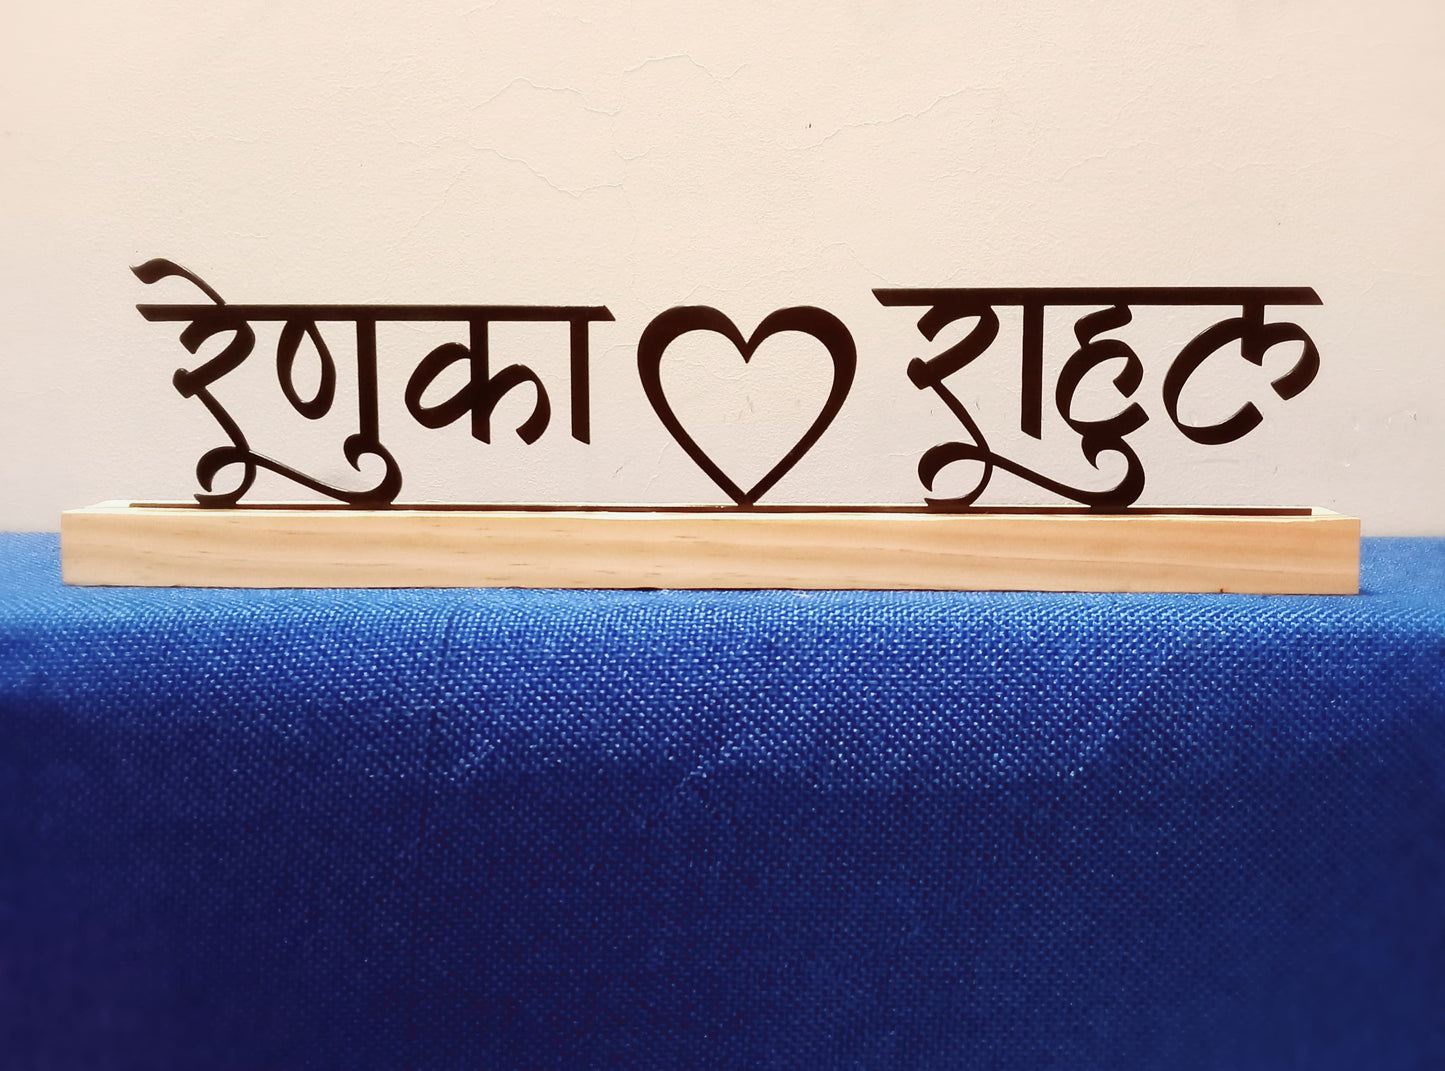 रेणुका ♡ राहुल